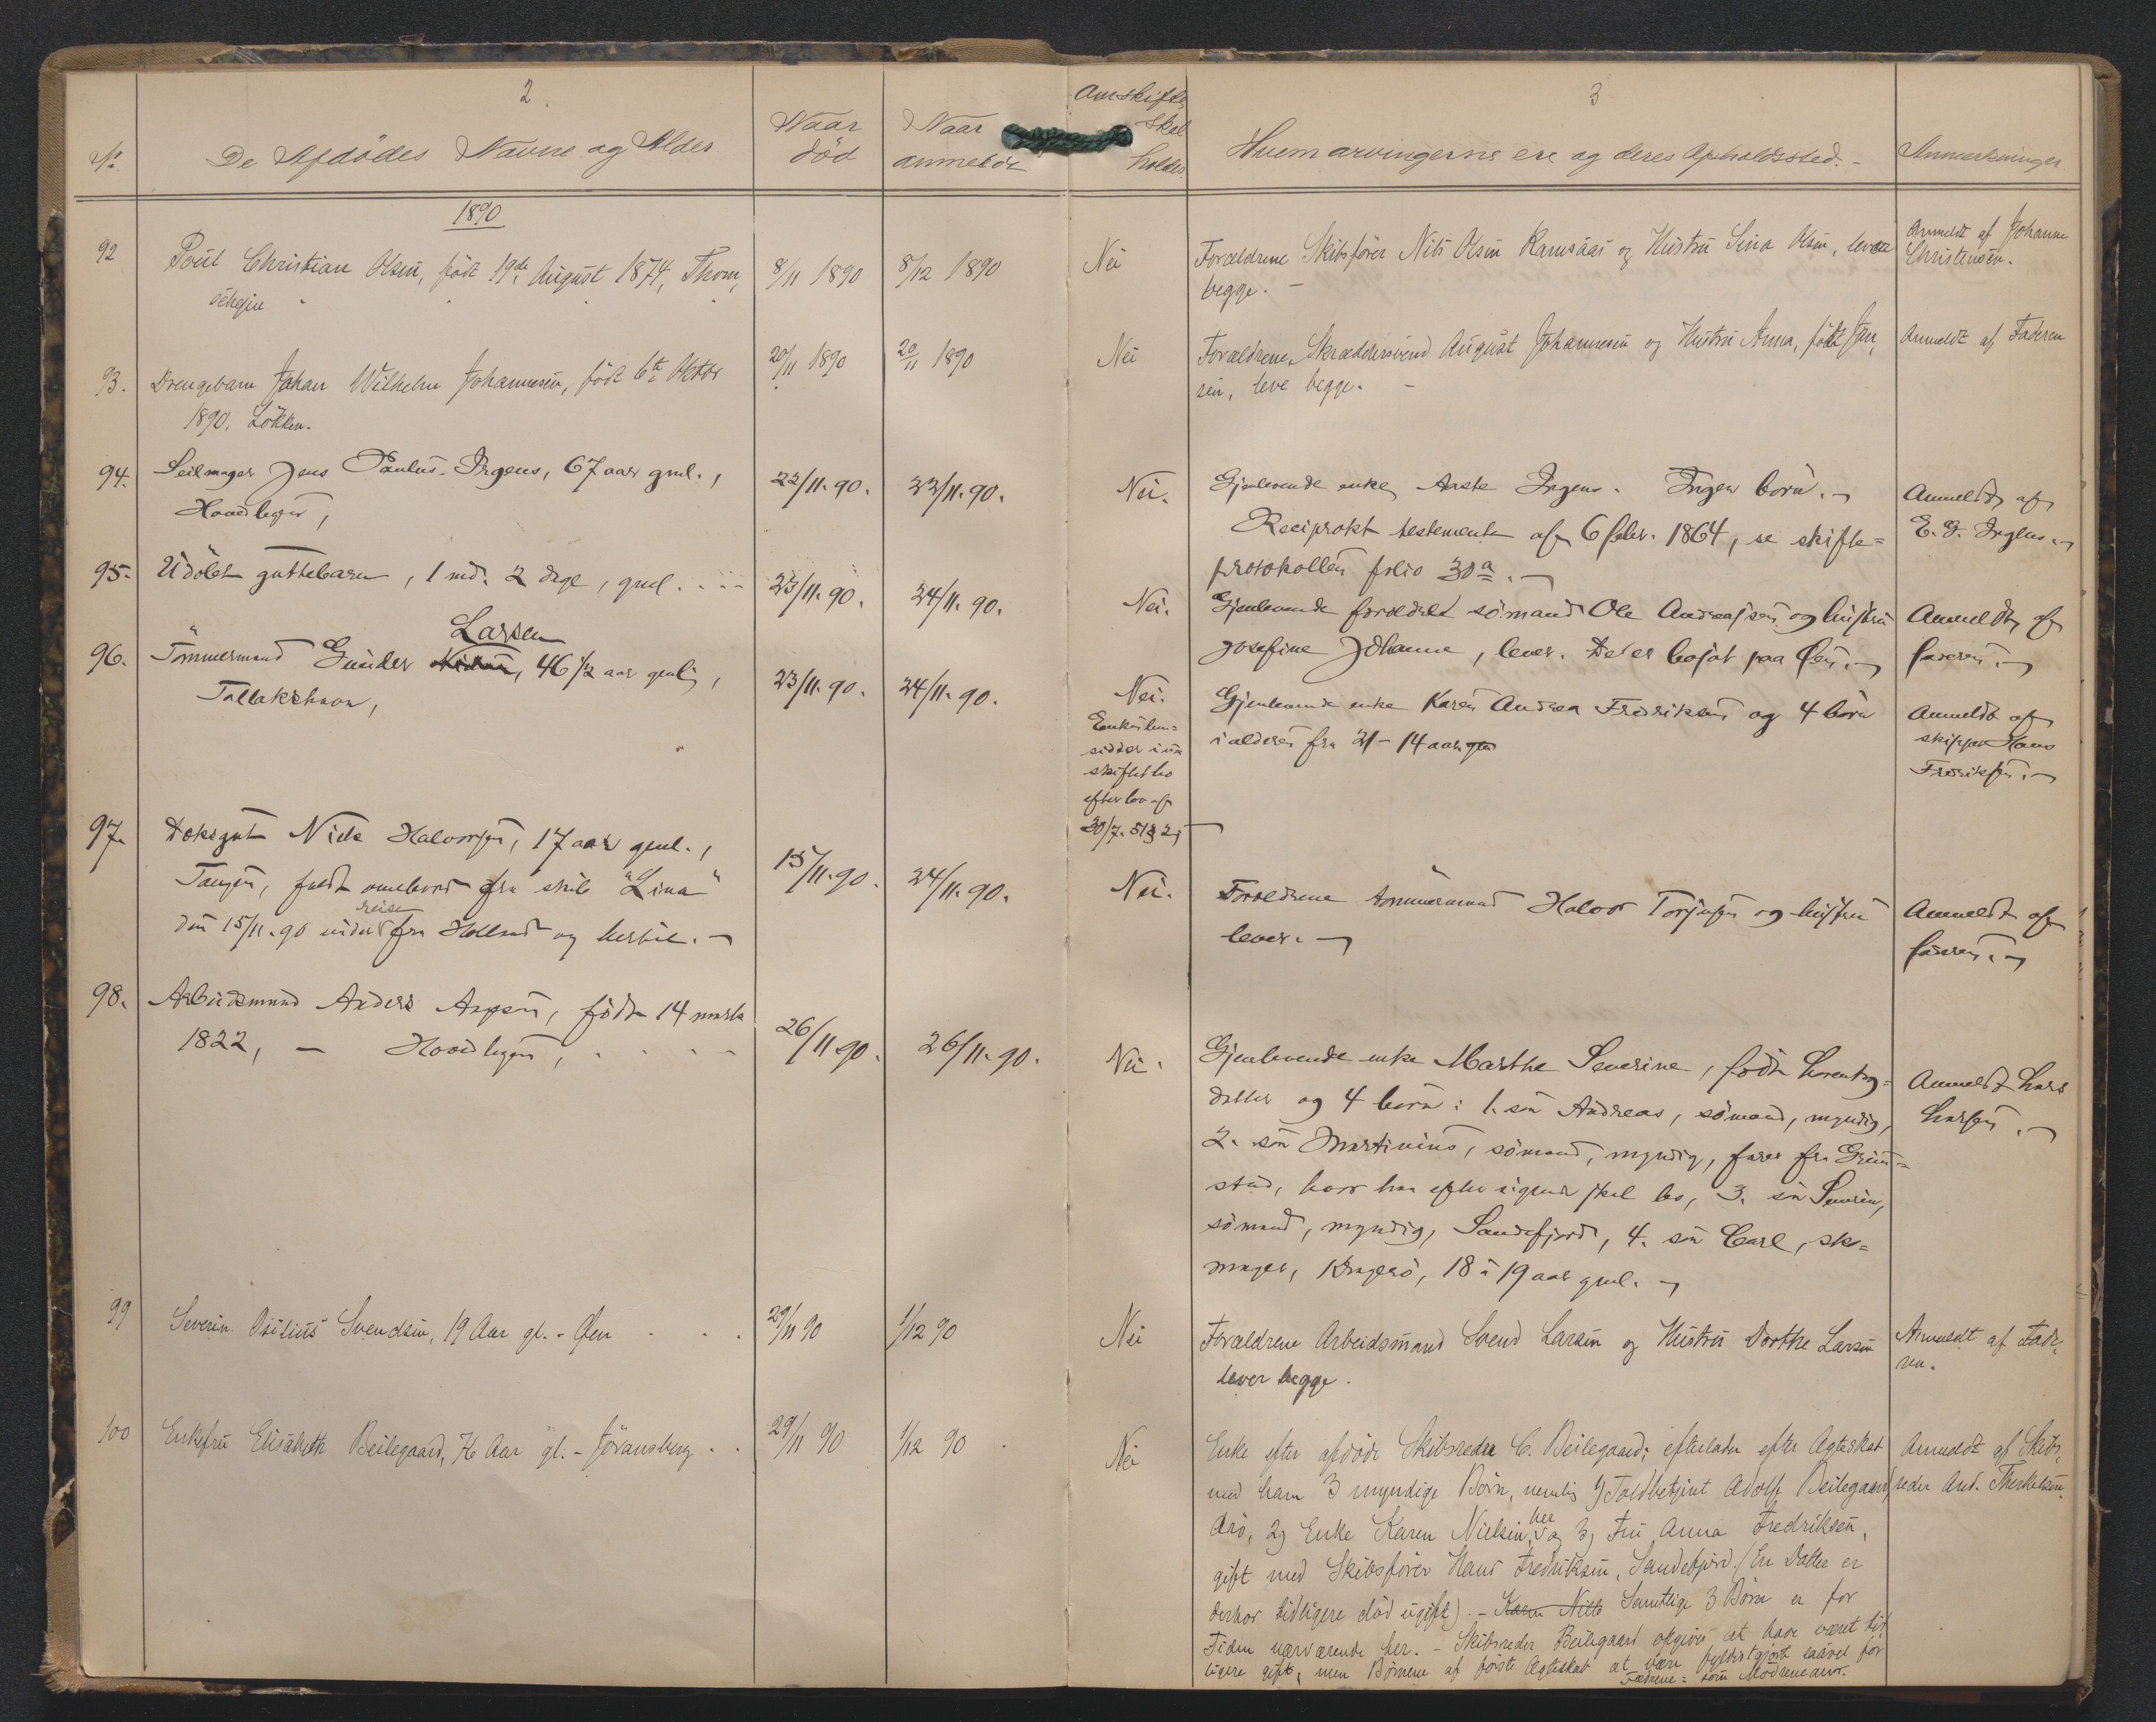 2.
No.
De Afdödes Navne og Alder
Naar död
Naar anmeldt
1890
92
Poul Christian Olsen, födt 19de August 1874, Thom,
8/11 1890
8/12 1890
93.
Drengebarn Johan Wilhelm Johannesen, födt 6te Oktbr
1890. Lökken.
20/11 1890
20/11 1890
94.
Seilmager Jens Paulus Irgens, 67 aar gml.,
22/11. 90.
22/11. 90.
95.
Udöbt guttebarn, 1 md. 2 dage, gml.
23/11. 90.
24/11. 90.
Larsen
96.
Tömmermand Gunder 46 1/2 aar gml.,
23/11. 90.
24/11. 90.
97.
Niels Halvorsen, 17 aar gml.,
Tangen, faldt overbord fra skib "Lina"
reise
den 15/11. 90 under fra Holland og hertil.
15/11. 90.
24/11. 90.
98.
Arbeidsmand Anders födt 14 marts
1822, —
26/11 90.
26/11. 90.
99
Severin Osilius Svendsen, 19 Aar gl. - Öen
29/11 90
1/12 90
100
Enkefru Elisabeth Beilegaard, 76 Aar gl. - Jöransberg
29/11 90
1/12 90
3
Om skifte skal holdes
Hvem arvingerne ere og deres Opholdssted. -
Anmerkninger
Nei
Forældrene Skibsförer Nils Olsen Ramsaas og Hustru Sina Olsen, lever
begge. -
Anmeldt af Johanne
Christensen.
Nei
Forældrene, Skræddersvend August Johannesen og Hustru Anna, födt Jan,
sen, leve begge. -
Anmeldt af Faderen
Nei.
Gjenlevende enke, Aaste Irgens. Ingen börn.
Reciprokt testamente af 6 febr. 1864, se skifte=
protokollen folio 30a.
Anmeldt af
E. J. Irgens.
Nei.
Gjenlevende forældre sömand Ole Andreassen og hustru
Josefine Johanne, lever. De er bosat paa Öen.
Anmeldt af
faderen.
Nei.
Gjenlevende enke Karen Andrea Fredriksen og 4 börn
i alderen fra 21 - 14 aar.
Enken hen=
sidder i
skiftet bo
efter lov af
30/7. 51 § 2,
Anmeldt af
skipper Hans
Fredriksen.
Nei.
Forældrene tömmermand Halvor Torjusen og hustru
lever.
Anmeldt af
faderen.
Nei.
Gjenlevende enke Marthe Severine, födt Lorents=
datter og 4 börn: 1. sön Andreas, sömand, myndig,
2. sön Martinius, sömand, myndig, farer fra Grim=
stad, hvor han efter sigende skal bo, 3. sön Severin,
sömand, myndig, Sandefjord, 4. sön Carl, sko=
mager, Kragerö, 18 à 19 aar gml.
Anmeldt Lars
Larsen.
Nei
Forældrene Arbeidsmand Svend Larsen og Hustru Dorthe Larsen
lever begge.
Anmeldt af Fade,
ren.
Nei
Enke efter afdöde Skibsreder C. Beilegaard; efterlader efter Ægteskab
med ham 3 myndige Börn, nemlig 1) Toldbetjent Adolf Beilegaard,
her
2) Enke Karen Nielsen, og 3) Fru Anna Fredriksen,
gift med Skibsförer Hans Fredriksen, Sandefjord. (En Datter er
derhos tidligere död ugift). - Karen Niels Samtlige 3 Börn er for
Tiden nærværende her. - Skibsreder Beilegaard opgives at have været tid,
ligere gift, men Börnene af förste Ægteskab at være fyldestgjort saavel for
Fædrene= som Mödrenearv.
Anmeldt af Skibs,
reder And. Therkelsen.